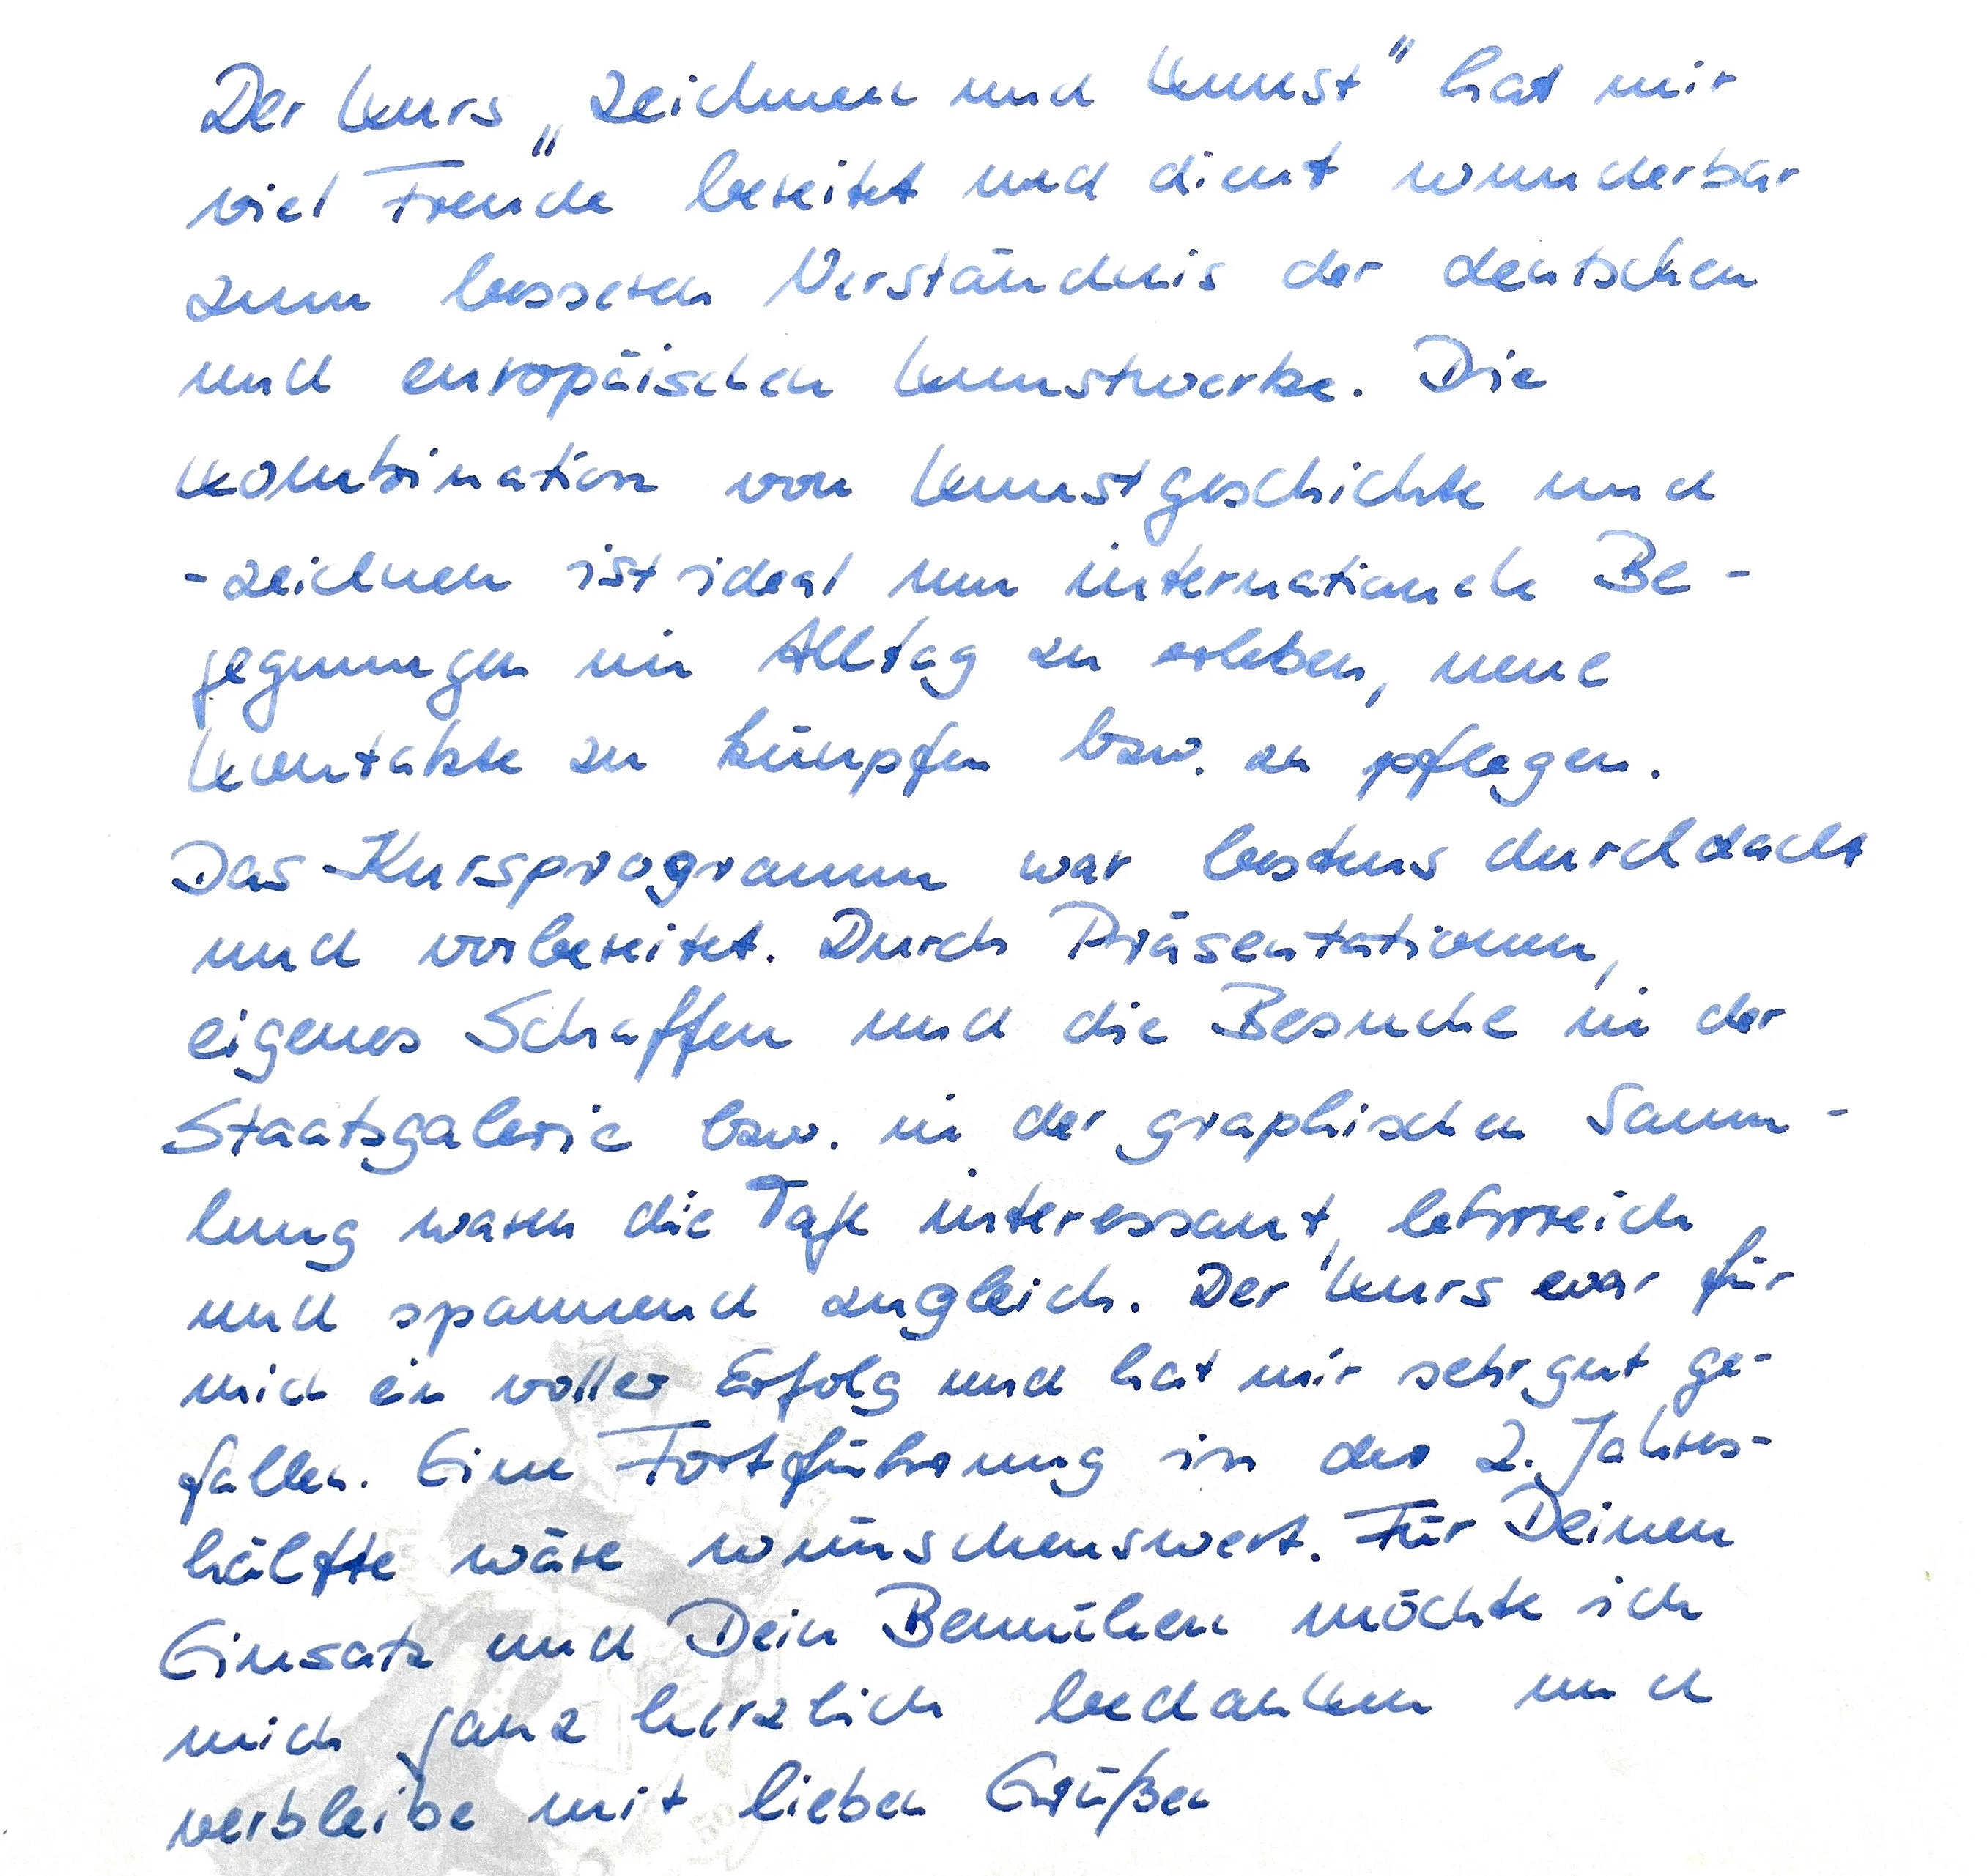 Der Kurs „Zeichnen und Kunst" hat mir
viel Freude bereitet und dient wunderbar
zum besseren Verständnis der deutschen
und europäischen Kunstwerke. Die
Kombination von Kunstgeschichte und
-zeichnen ist ideal um internationale Be-
gegnungen im Alltag zu erleben, neue
Kontakte zu knüpfen bzw. zu pflegen.
Das Kursprogramm war bestens durchdacht
und vorbereitet. Durch Präsentationen,
eigenes Schaffen und die Besuche in der
Staatsgalerie bzw. in der graphischen Samm-
lung waren die Tage interessant, lehrreich
und spannend zugleich. Der Kurs war für
mich ein voller Erfolg und hat mir sehr gut ge-
fallen. Eine Fortführung in der 2. Jahres-
hälfte wäre wünschenswert. Für Deinen
Einsatz und Dein Bemühen möchte ich
mich ganz herzlich bedanken und
verbleibe mit lieben Grüßen